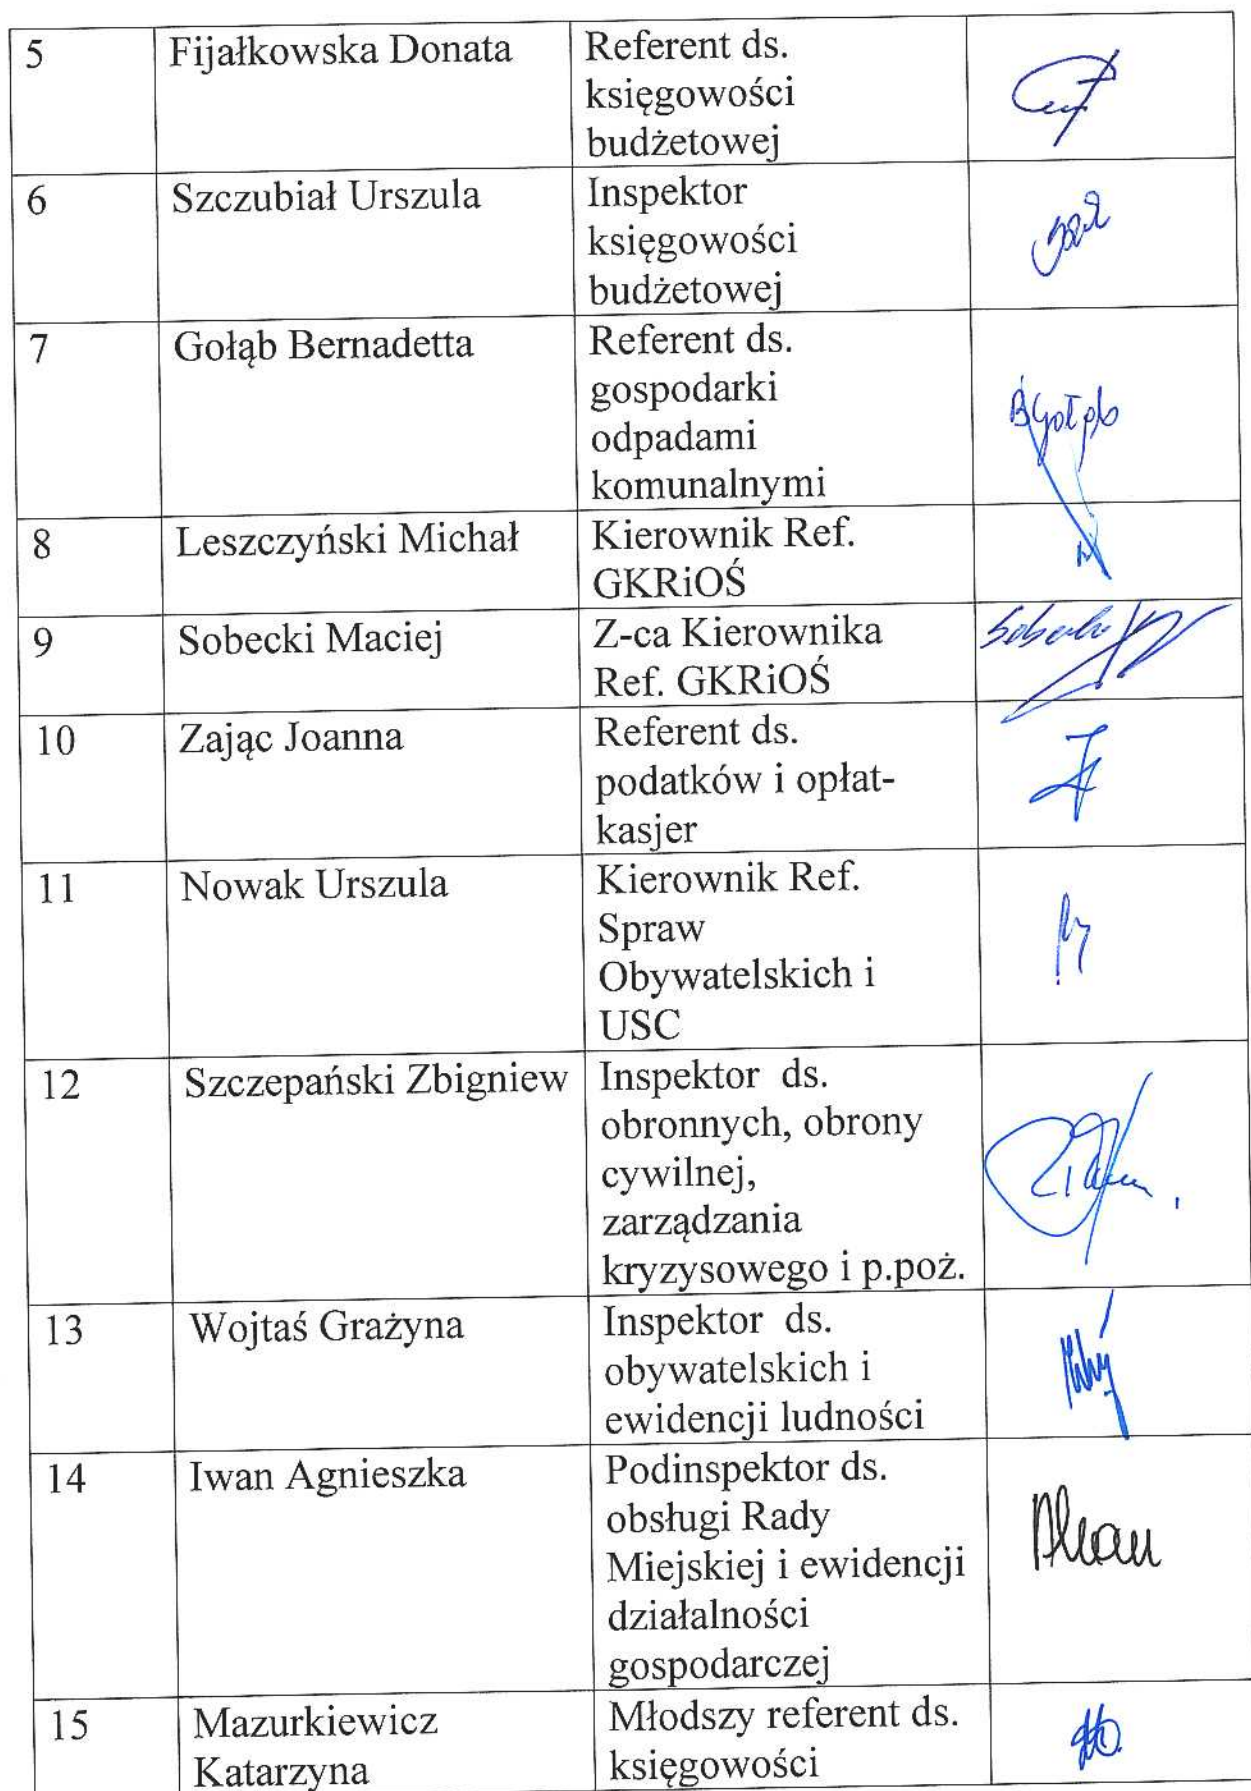 5 Fijałkowska Donata Referent ds.
księgowości
budżetowej
6 Szczubiał Urszula Inspektor
księgowości
budżetowej
7 Gołąb Bernadetta Referent ds.
gospodarki
odpadami
komunalnymi
BGołąb
8 Leszczyński Michał Kierownik Ref.
GKRiOŚ
9 Sobecki Maciej Z-ca Kierownika
Ref. GKRiOŚ
10 Zając Joanna Referent ds.
podatków i opłat-
kasjer
11 Nowak Urszula Kierownik Ref.
Spraw
Obywatelskich i
USC
12 Szczepański Zbigniew Inspektor ds.
obronnych, obrony
cywilnej,
zarządzania
kryzysowego i p.poż.
13 Wojtaś Grażyna Inspektor ds.
obywatelskich i
ewidencji ludności
14 Iwan Agnieszka Podinspektor ds.
obsługi Rady
Miejskiej i ewidencji
działalności
gospodarczej
15 Mazurkiewicz Młodszy referent ds.
Katarzyna księgowości